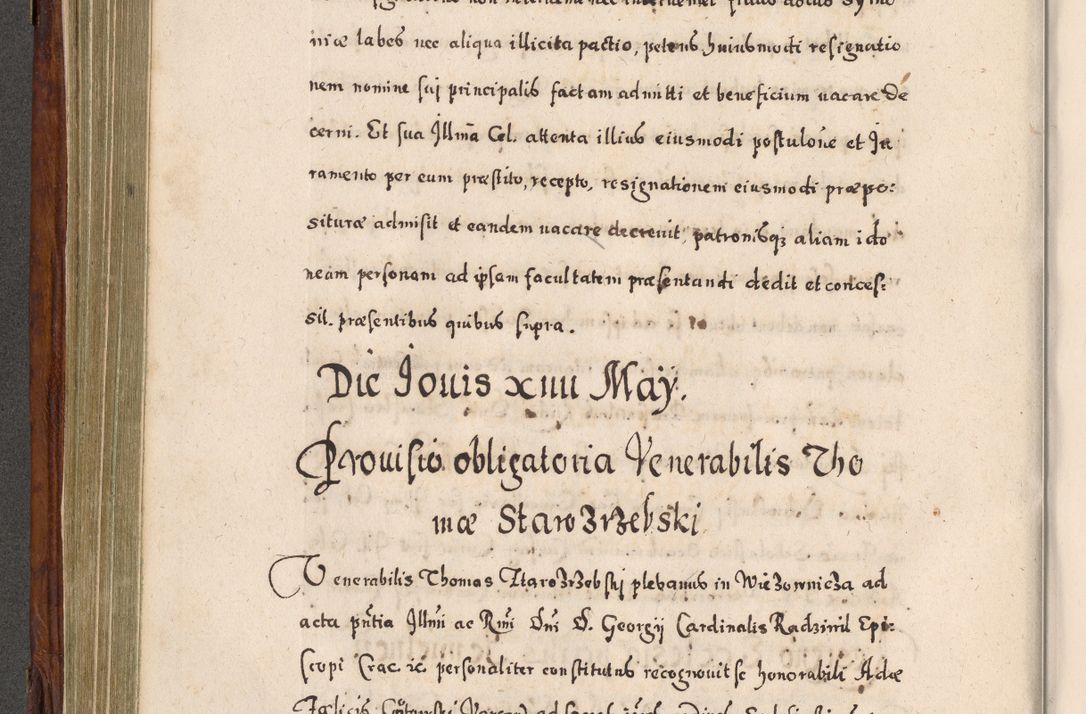 niæ labes nec aliqua illicita pactio, petens huiusmodi resignatio
nem nomine sui principalis factam admitti et beneficium uacare de
cerni. Et sua Illma Cel. attenta illius eiusmodi postulone et Iu
ramento per eum præstito, recepto, resignationem eiusmodi præpo:
situræ admisit et eandem uacare decreuit, patronisq3 aliam ido
neam personam ad ipsam facultatem præsentandi dedit et conces:
sit. præsentibus quibus supra.
Die Iouis xiiii Maÿ.
Prouisio obligatoria Venerabilis Tho
mæ Starozrzebski
Venerabilis Thomas Starozrzebski plebanus in Wiezownicza ad
acta pntia Illmi ac Rmi Dni D. Georgÿ Cardinalis Radziwil Epi:
scopi Crac etc personaliter constitutus recognouit se honorabili Adæ